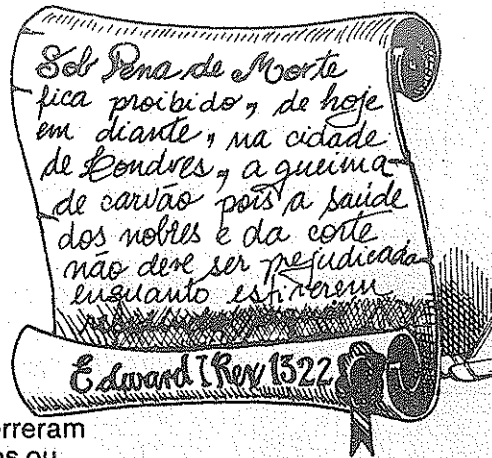 Sob Pena de Morte
fica proibido, de hoje
em diante, na cidade
de Londres, a queima
de carvão pois a saúde
dos nobres e da corte
não deve ser prejudicada
enquanto estiverem
Edward I Rex 1322
erreram
os ou